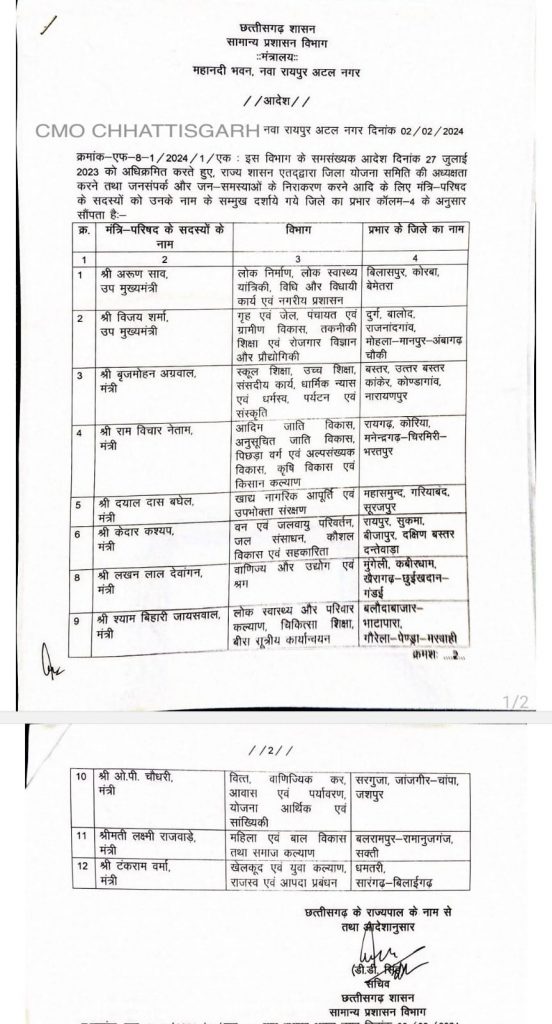 छत्तीसगढ़ शासन
सामान्य प्रशासन विभाग
::मंत्रालय::
महानदी भवन, नवा रायपुर अटल नगर
//आदेश//
CMO CHHATTISGARH नवा रायपुर अटल नगर दिनांक 02/02/2024
क्रमांक-एफ-8-1/2024/1/एक : इस विभाग के समसंख्यक आदेश दिनांक 27 जुलाई
2023 को अधिक्रमित करते हुए, राज्य शासन एतद्द्वारा जिला योजना समिति की अध्यक्षता
करने तथा जनसंपर्क और जन-समस्याओं के निराकरण करने आदि के लिए मंत्रि-परिषद
के सदस्यों को उनके नाम के सम्मुख दर्शाये गये जिले का प्रभार कॉलम-4 के अनुसार
सौंपता है:-
क्र. मंत्रि-परिषद के सदस्यों के विभाग प्रभार के जिले का नाम
नाम
1 2 3 4
1 श्री अरूण साव, लोक निर्माण, लोक स्वास्थ्य बिलासपुर, कोरबा,
उप मुख्यमंत्री यांत्रिकी, विधि और विधायी बेमेतरा
कार्य एवं नगरीय प्रशासन
2 श्री विजय शर्मा, गृह एवं जेल, पंचायत एवं दुर्ग, बालोद,
उप मुख्यमंत्री ग्रामीण विकास, तकनीकी राजनांदगांव,
शिक्षा एवं रोजगार विज्ञान मोहला-मानपुर-अंबागढ़
और प्रौद्योगिकी चौकी
3 श्री बृजमोहन अग्रवाल, स्कूल शिक्षा, उच्च शिक्षा, बस्तर, उत्तर बस्तर
मंत्री संसदीय कार्य, धार्मिक न्यास कांकेर, कोण्डागांव,
एवं धर्मस्व, पर्यटन एवं नारायणपुर
संस्कृति
4 श्री राम विचार नेताम, आदिम जाति विकास, रायगढ़, कोरिया,
मंत्री अनुसूचित जाति विकास, मनेन्द्रगढ़-चिरमिरी-
पिछड़ा वर्ग एवं अल्पसंख्यक भरतपुर
विकास, कृषि विकास एवं
किसान कल्याण
5 श्री दयाल दास बघेल, खाद्य नागरिक आपूर्ति एवं महासमुन्द, गरियाबंद,
मंत्री उपभोक्ता संरक्षण सूरजपुर
6 श्री केदार कश्यप, वन एवं जलवायु परिवर्तन, रायपुर, सुकमा,
मंत्री जल संसाधन, कौशल बीजापुर, दक्षिण बस्तर
विकास एवं सहकारिता दन्तेवाड़ा
8 श्री लखन लाल देवांगन, वाणिज्य और उद्योग एवं मुंगेली, कबीरधाम,
मंत्री श्रम खैरागढ़-छुईखदान-
गंडई
9 श्री श्याम बिहारी जायसवाल, लोक स्वास्थ्य और परिवार बलौदाबाजार-
मंत्री कल्याण, चिकित्सा शिक्षा, भाटापारा,
बीस सूत्रीय कार्यान्वयन गौरेला-पेण्ड्रा-मरवाही
क्रमशः ..2..
1/2
//2//
10 श्री ओ.पी. चौधरी, वित्त, वाणिज्यिक कर, सरगुजा, जांजगीर-चांपा,
मंत्री आवास एवं पर्यावरण, जशपुर
योजना आर्थिक एवं
सांख्यिकी
11 श्रीमती लक्ष्मी राजवाड़े, महिला एवं बाल विकास बलरामपुर-रामानुजगंज,
मंत्री तथा समाज कल्याण सक्ती
12 श्री टंकराम वर्मा, खेलकूद एवं युवा कल्याण, धमतरी,
मंत्री राजस्व एवं आपदा प्रबंधन सारंगढ़-बिलाईगढ़
छत्तीसगढ़ के राज्यपाल के नाम से
तथा आदेशानुसार
(डी.डी. सिंह)
सचिव
छत्तीसगढ़ शासन
सामान्य प्रशासन विभाग